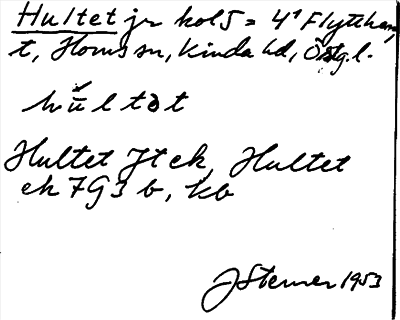 Hultet jr kol 5 = 4¹ Flytthem,
t, Horns sn, Kinda hd, Östg.l.
hŭltət
Hultet Jt ek, Hultet
ek 7G3 b, kb
J Sterner 1953